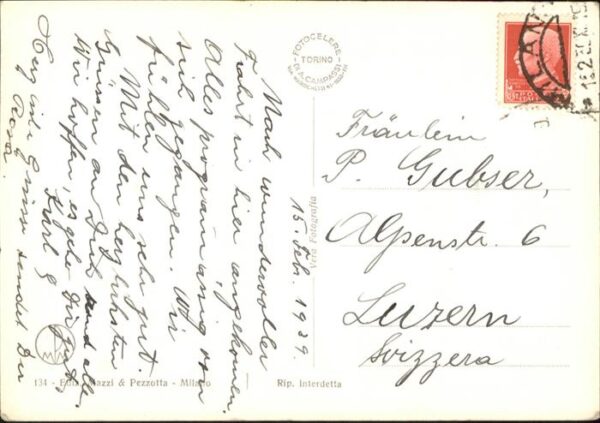 15. Feb. 1939.
Nach wundervoller
Fahrt in hier angekommen.
Alles programmässig von
sich gegangen. Wir
fühlen uns sehr gut.
Mit den herzlichsten
Grüssen an Dich und alle.
Wir hoffen, es gehe Dir gut,
Karl G
Herzliche Grüsse sendet Dir
Rosa.
FOTOCELERE
TORINO
DI A. CAMPASSI
Vera Fotografia
MILANO
Fräulein
P. Gubser,
Alpenstr. 6
Luzern
Svizzera
134 - Ediz. Mazzi & Pezzotta - Milano
Rip. Interdetta